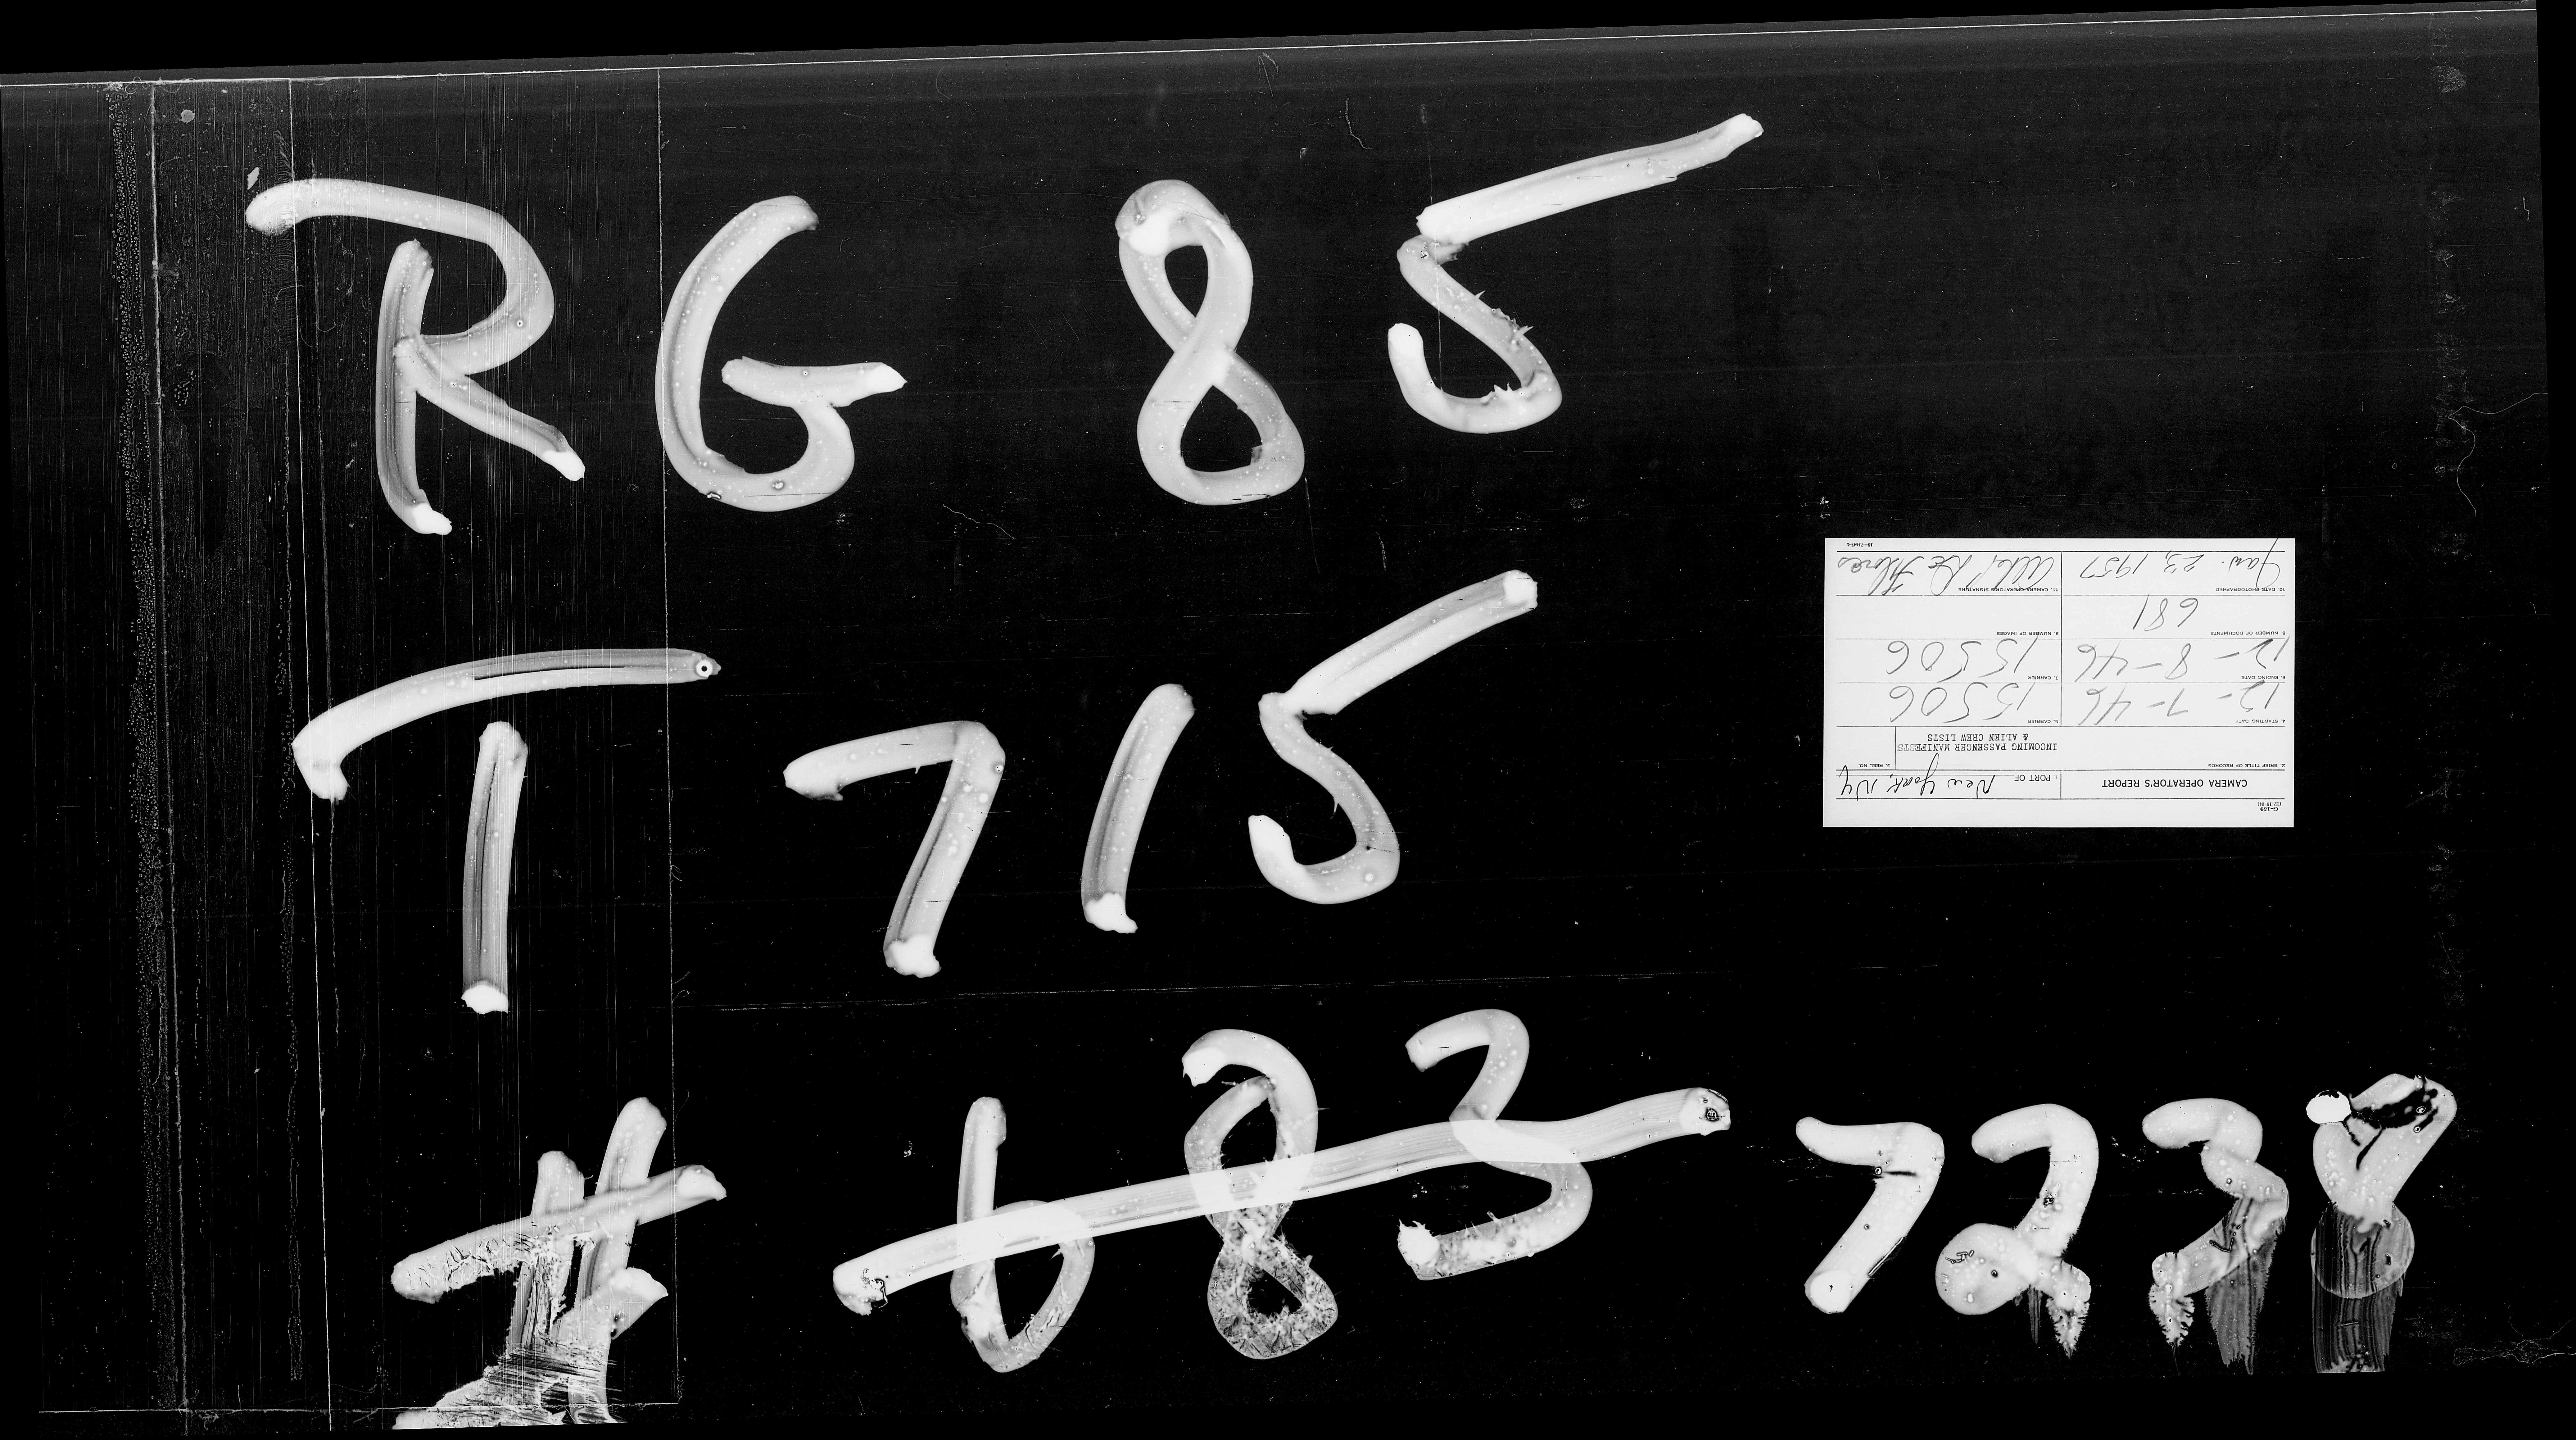 RG 85
T 715
# 683 7238
G-159
(12-15-54)
CAMERA OPERATOR'S REPORT
1. PORT OF New York, NY
2. BRIEF TITLE OF RECORDS
INCOMING PASSENGER MANIFESTS
& ALIEN CREW LISTS
3. REEL NO.
4. STARTING DATE
12-7-46
5. CARRIER
15506
6. ENDING DATE
12-8-46
7. CARRIER
15506
8. NUMBER OF DOCUMENTS
681
9. NUMBER OF IMAGES
10. DATE PHOTOGRAPHED
Jan. 23, 1957
11. CAMERA OPERATOR'S SIGNATURE